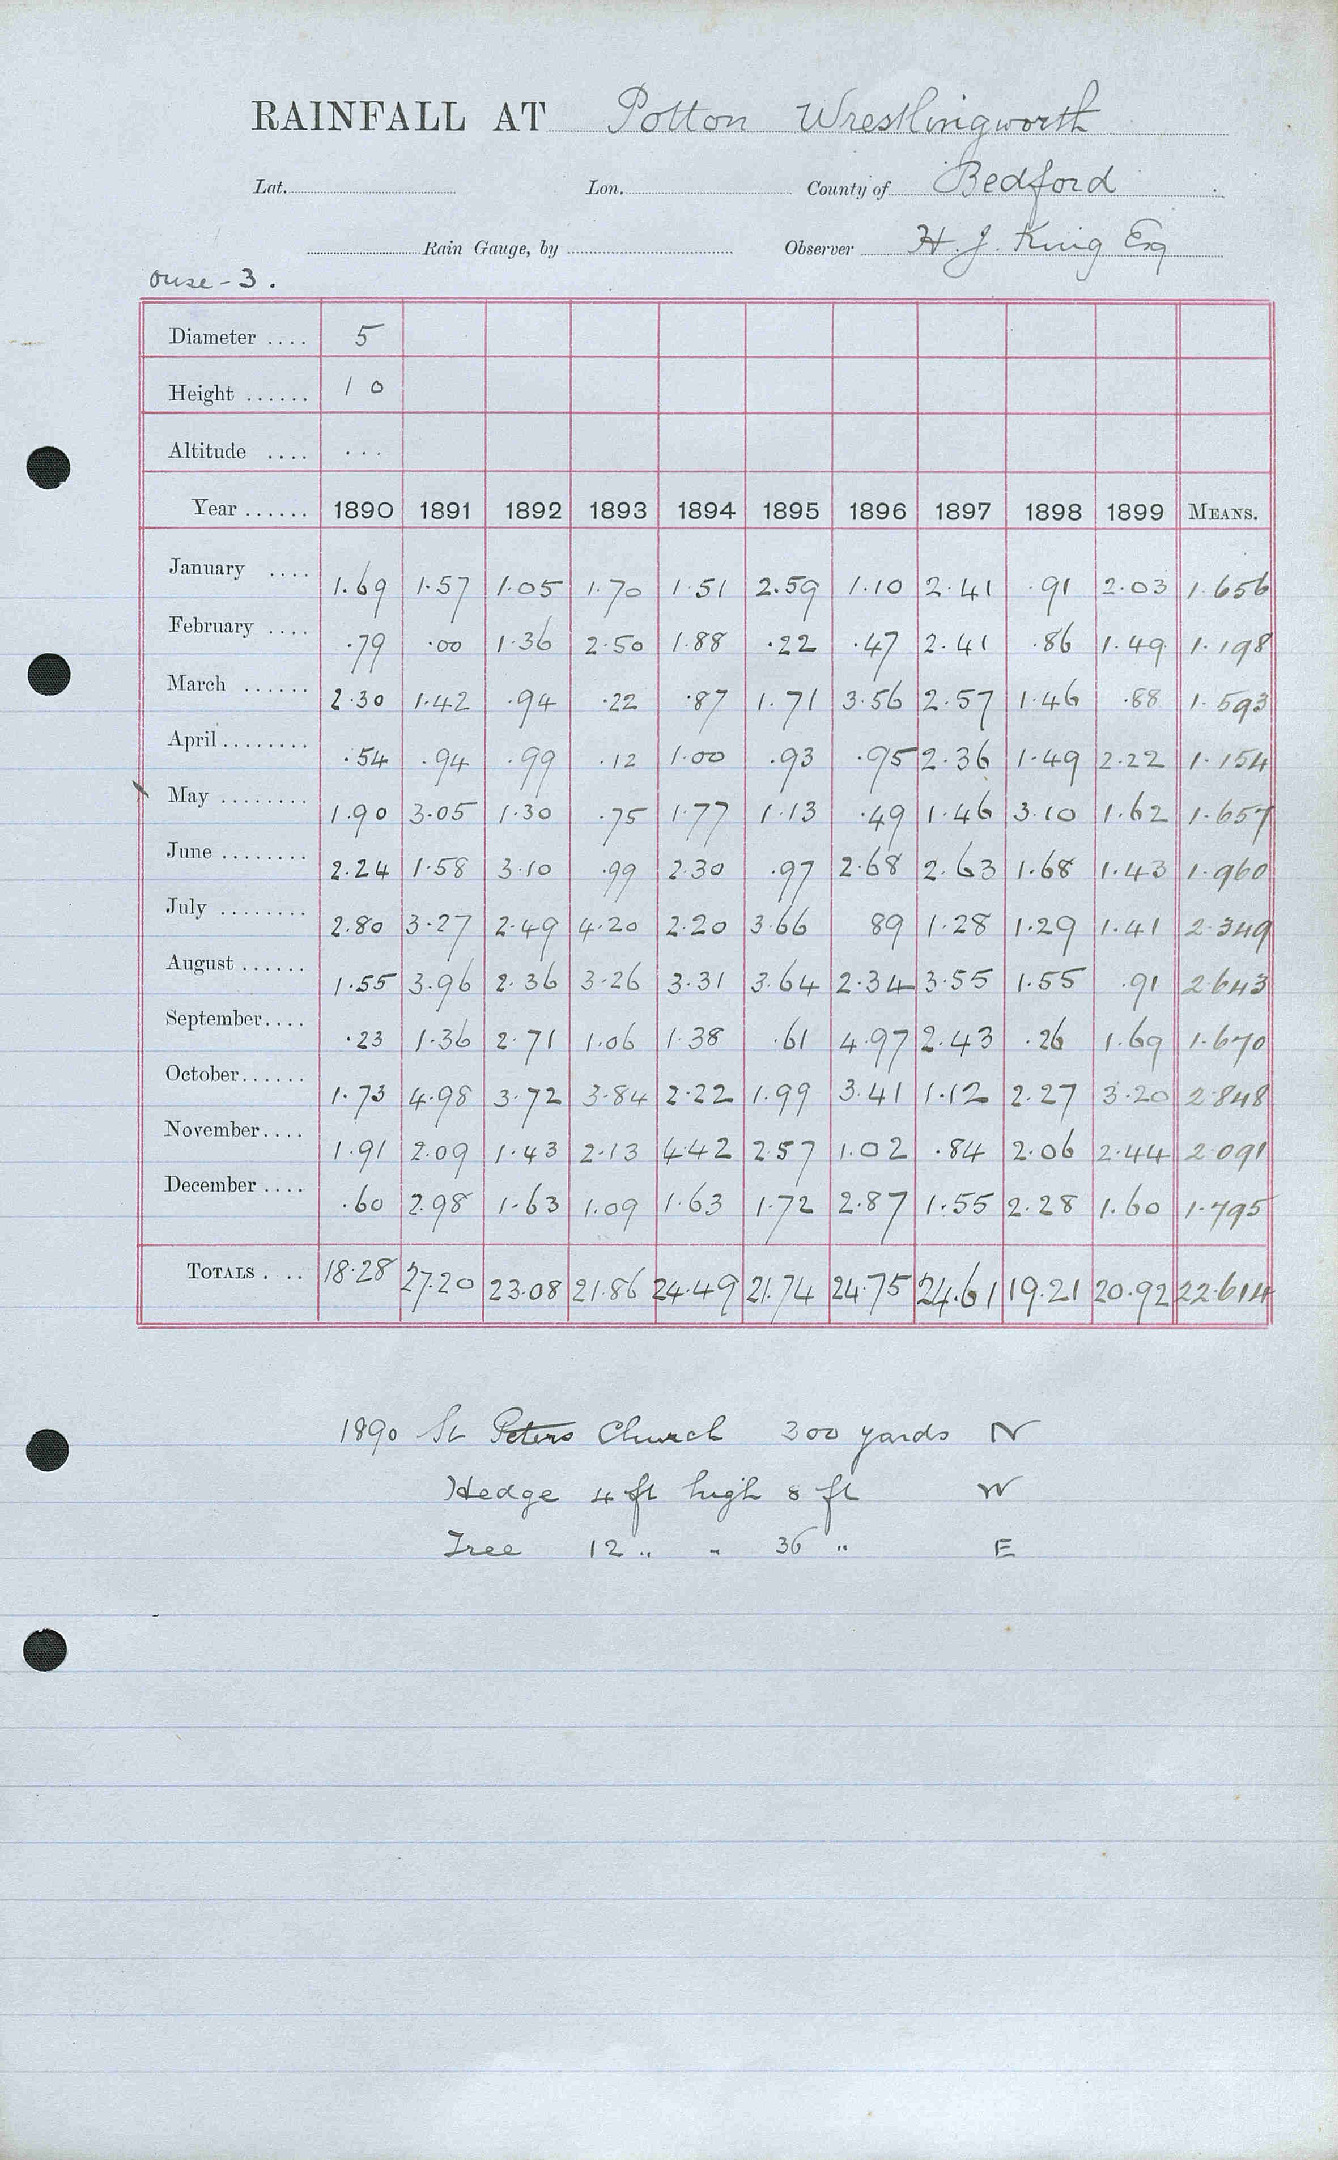 RAINFALL AT Potton Wrestlingworth
Lat. Lon. County of Bedford
Rain Gauge, by Observer H. J. King Esq
Ouse - 3.
Diameter .... 5
Height ...... 1 0
Altitude .... ...
Year ...... 1890 1891 1892 1893 1894 1895 1896 1897 1898 1899 MEANS.
January .... 1.69 1.57 1.05 1.70 1.51 2.59 1.10 2.41 .91 2.03 1.656
February .... .79 .00 1.36 2.50 1.88 .22 .47 2.41 .86 1.49 1.198
March ...... 2.30 1.42 .94 .22 .87 1.71 3.56 2.57 1.46 .88 1.593
April ........ .54 .94 .99 .12 1.00 .93 .95 2.36 1.49 2.22 1.154
May ........ 1.90 3.05 1.30 .75 1.77 1.13 .49 1.46 3.10 1.62 1.657
June ........ 2.24 1.58 3.10 .99 2.30 .97 2.68 2.63 1.68 1.43 1.960
July ........ 2.80 3.27 2.49 4.20 2.20 3.66 89 1.28 1.29 1.41 2.349
August ...... 1.55 3.96 2.36 3.26 3.31 3.64 2.34 3.55 1.55 .91 2.643
September.... .23 1.36 2.71 1.06 1.38 .61 4.97 2.43 .26 1.69 1.670
October...... 1.73 4.98 3.72 3.84 2.22 1.99 3.41 1.12 2.27 3.20 2.848
November.... 1.91 2.09 1.43 2.13 4.42 2.57 1.02 .84 2.06 2.44 2.091
December .... .60 2.98 1.63 1.09 1.63 1.72 2.87 1.55 2.28 1.60 1.795
TOTALS . .. 18.28 27.20 23.08 21.86 24.49 21.74 24.75 24.61 19.21 20.92 22.614
1890 St Peters Church 300 yards N
Hedge 4 ft high 8 ft W
Tree 12 " " 36 " E